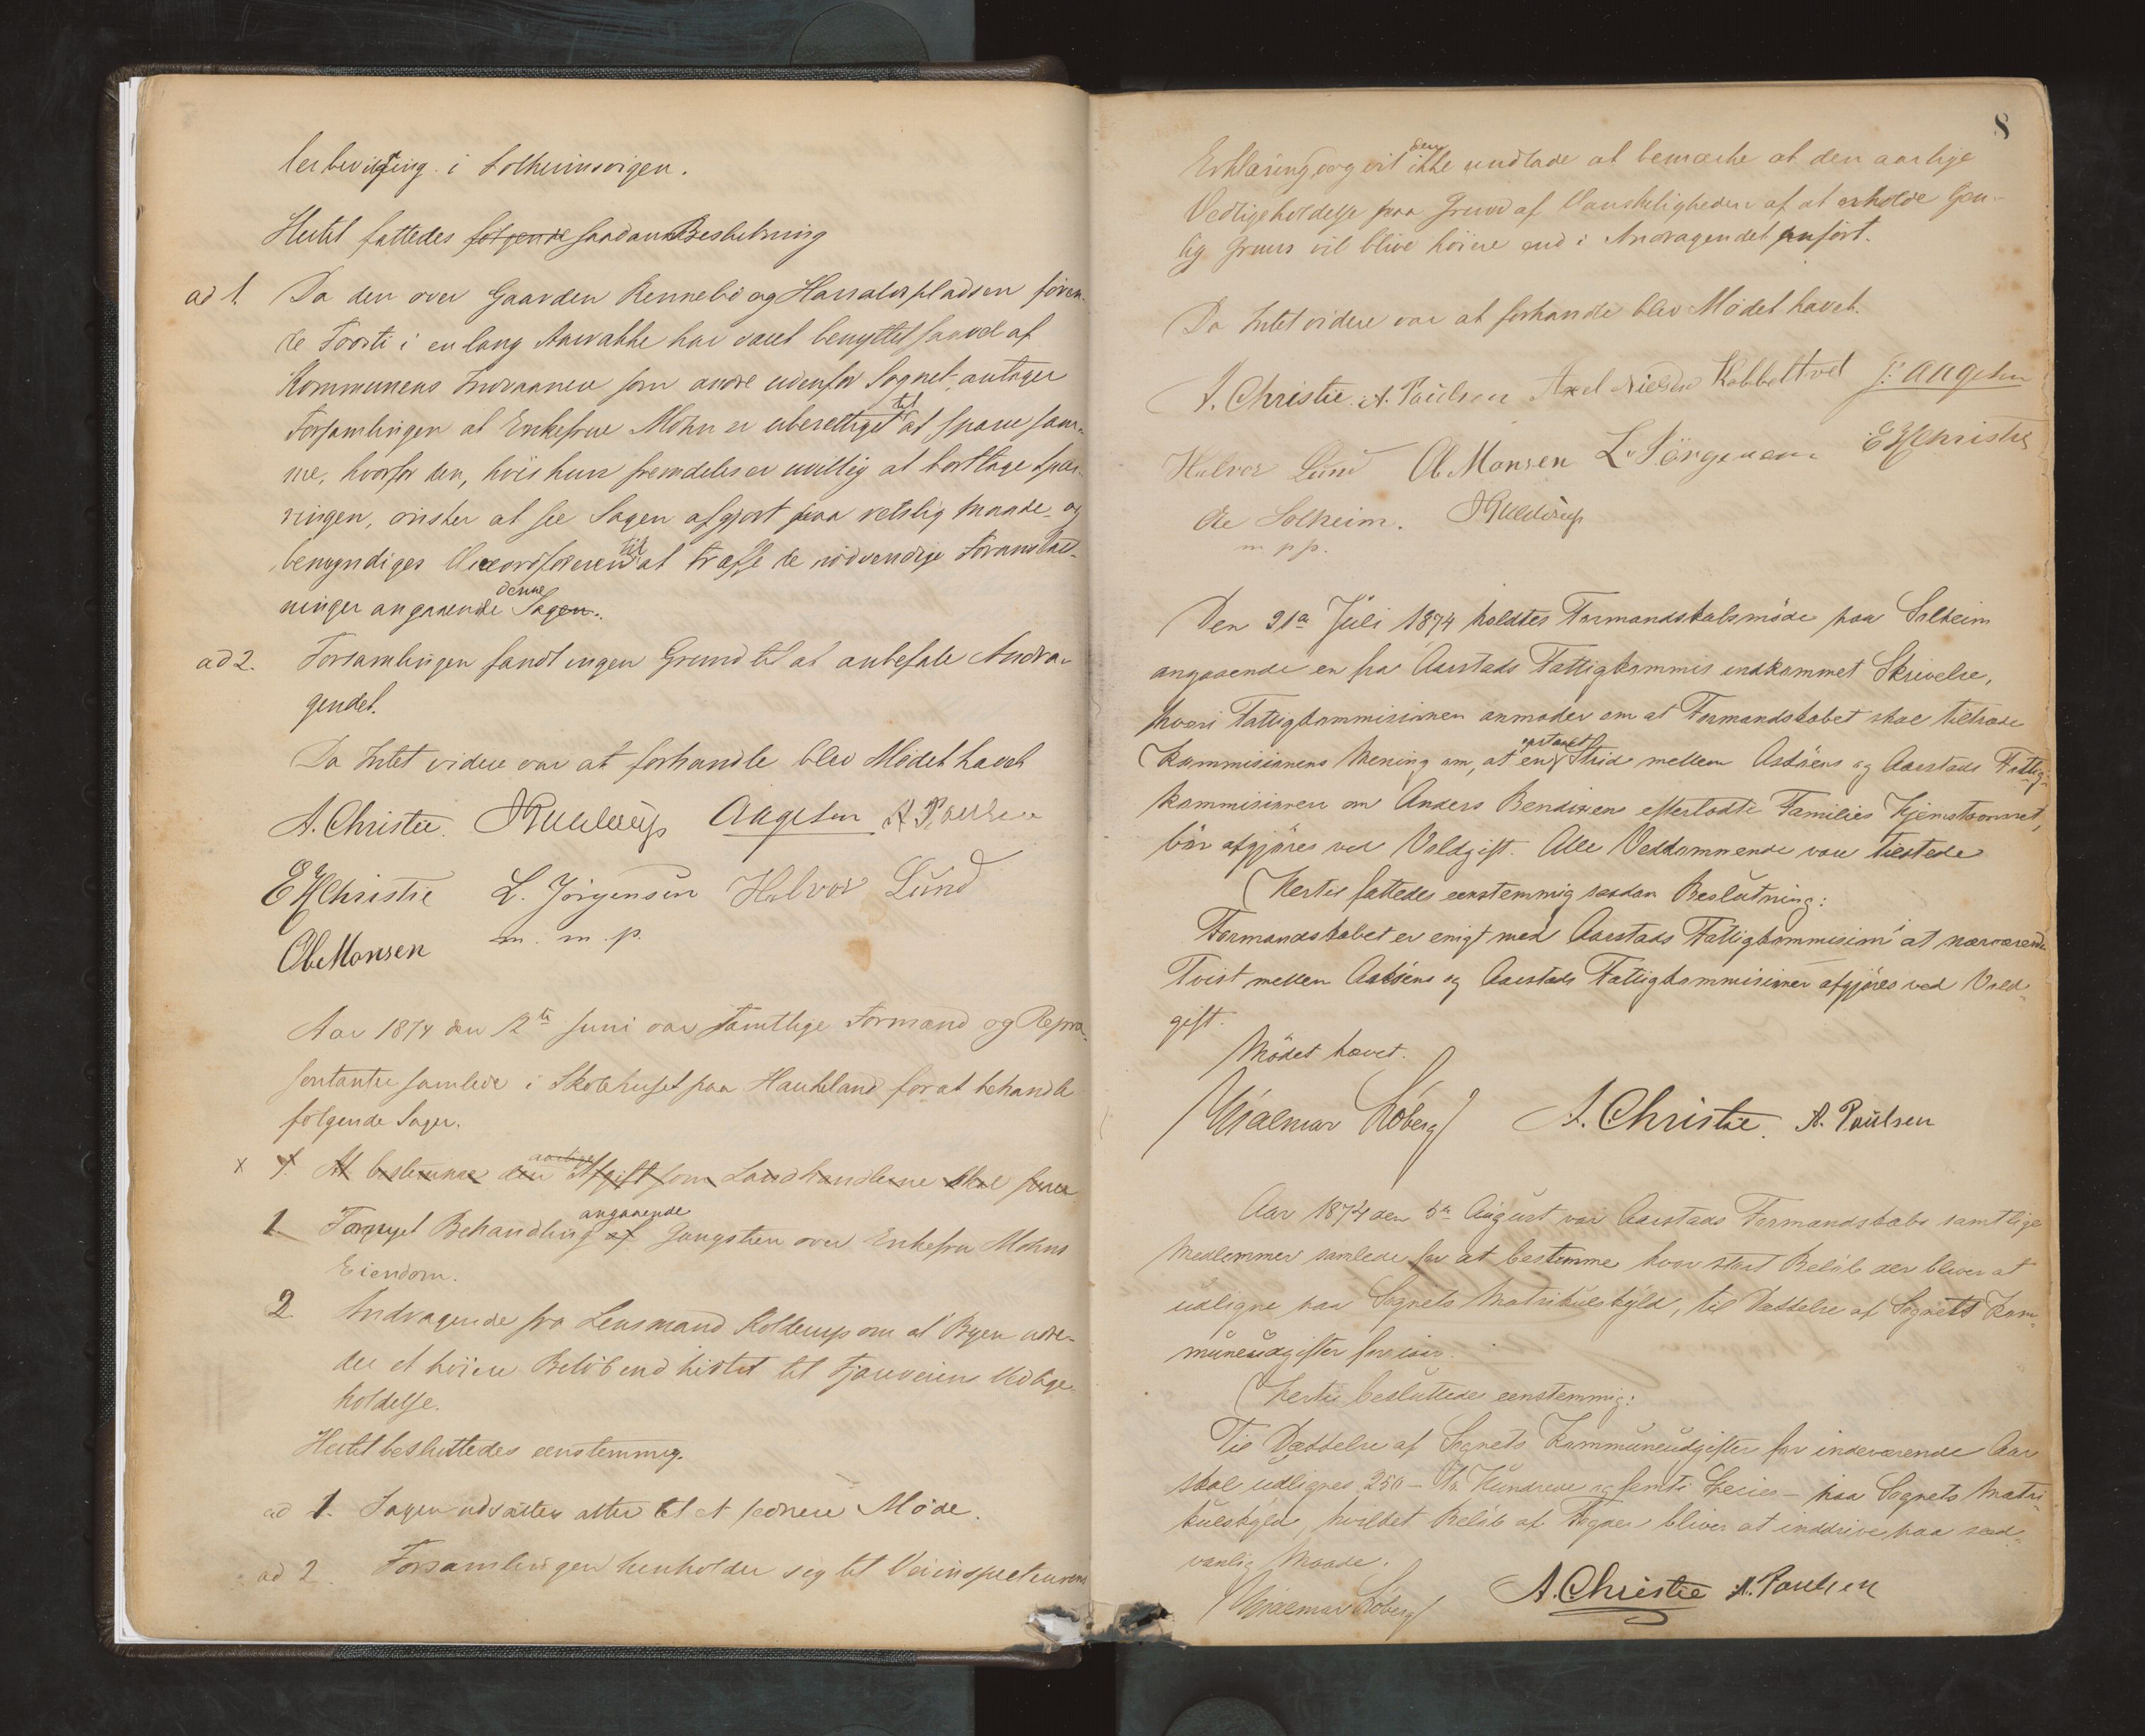 lerbevilgting i Solheimsvigen.
Hertil fattedes følgende saadan Beslutning
ad 1. Da den over Gaarden Rennebø og Haraldspladsen føren-
de Foosti i en lang Aarrække har været benyttet saavel af
Kommunens Indvaanere som andre udenfor Sognet, antager
Forsamlingen at Enkefrue Mohn er uberettiget til at spærre sam-
me, hvorfor den, hvis hun fremdeles er uvillig at borttage Spær-
ringen, ønsker at see Sagen afgjort paa retslig Maade og
bemyndiges Viceordføreren til at træffe de nødvendige Foranstalt-
ninger angaaende denne Sagen.
ad 2. Forsamlingen fandt ingen Grund til at anbefale Andra-
gendet.
Da Intet videre var at forhandle blev Mødet hævet
A. Christie. Aagesen A. Paulsen
E H Christie L. Jörgensen Halvor Lund
Ole Monsen m. m. p.
Aar 1874 den 12te Juni var samtlige Formænd og Repræ-
sentanter samlede i Skolehuset paa Haukeland for at behandle
følgende Sager.
x 1. At bestemme den aarlige Afgift som Landhandlerne skal svare
1 Fornyet Behandling af angaaende Gangstien over Enkefru Mohns
Eiendom.
2 Andragende fra Lensmand Kolderup om at Byen udre-
der et høiere Beløb end hidtil til Fjøsveiens Vedlige-
holdelse.
Hertil besluttedes eenstemmig.
ad 1. Sagen udsættes atter til et senere Møde.
ad 2. Forsamlingen henholder sig til Veiinspecteurens
8
Erklæring, og vil dem ikke undlade at bemærke at den aarlige
Vedligeholdelse paa Grund af Vanskeligheden af at erholde tjen-
lig Gruus vil blive høiere end i Andragendet anført.
Da Intet videre var at forhandle blev Mødet hævet.
A. Christie. A. Paulsen Axel Nielsen Kobbeltvet J: Aagesen
Halvor Lund Ole Monsen L. Jörgensen E H Christie
Ole Solheim.
m. p. p.
Den 21de Júli 1874 holdtes Formandskabsmøde paa Solheim
angaaende en fra Aarstads Fattigkommis indkommet Skrivelse,
hvori Fattigkommisionen anmoder om at Formandskabet skal tiltræde
Kommisionens Mening om, at en opstaaet Strid mellem Askøens og Aarstads Fattig-
kommisioner om Anders Bendixen efterladte Families Hjemstavnsret,
bør afgjøres ved Voldgift. Alle Vedkommende vare tilstede
Hertil fattedes eenstemmig saadan Beslutning:
Formandskabet er enigt med Aarstads Fattigkommision i at nærværende
Tvist mellem Askøens og Aarstads Fattigkommisioner afgjøres ved Vold-
gift.
Mødet hævet.
Hjalmar Løberg A. Christie. A. Paulsen
Aar 1874 den 5te August var Aarstads Formandskabs samtlige
Medlemmer samlede for at bestemme hvor stort Beløb der bliver at
udligne paa Sognets Matrikulskyld, til Dættelse af Sognets Kom-
muneudgifter for iaar.
Hertil besluttede eenstemmig:
Til Dættelse af Sognets Kommuneudgifter for indeværende Aar
skal udlignes 250 – To Hundrede og femti Species – paa Sognets Matri-
kulskyld, hvilket Beløb af Fogden bliver at inddrive paa sæd-
vanlig Maade.
Hjalmar Løberg A. Christie A. Paulsen